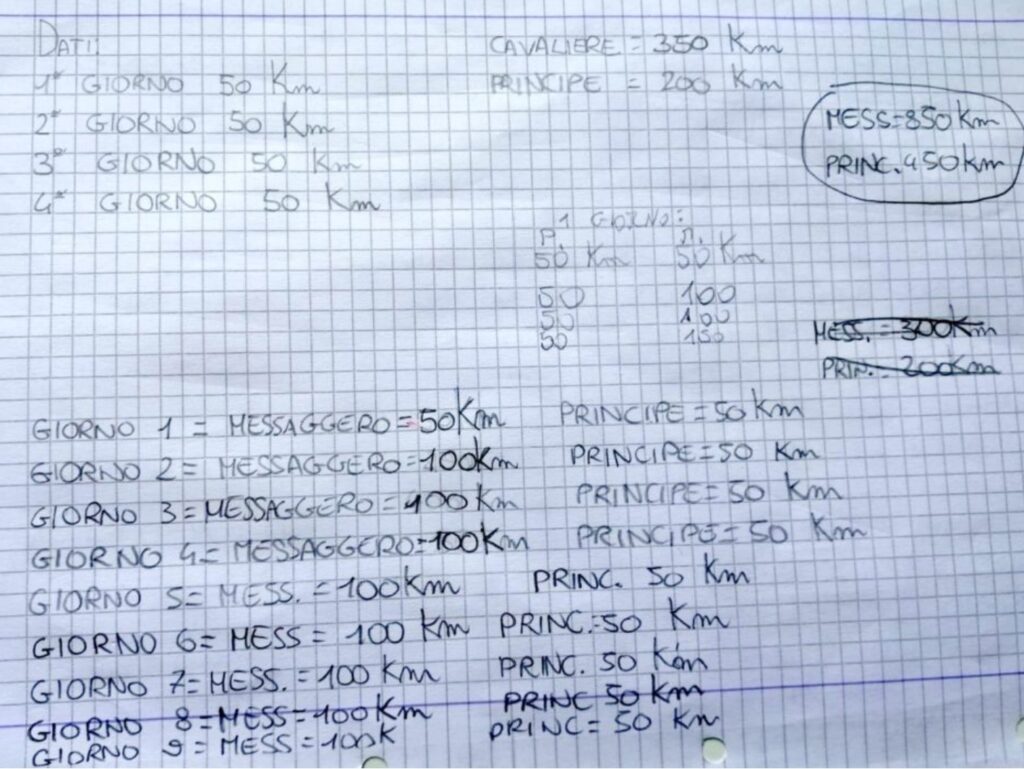 DATI:
1° GIORNO 50 Km
2° GIORNO 50 Km
3° GIORNO 50 Km
4° GIORNO 50 Km
CAVALIERE = 350 Km
PRINCIPE = 200 Km
MESS=850Km
PRINC. 450Km
1 GIORNO:
P.
50 Km 50 Km
50 100
50 100
50 150
MESS. = 300Km
PRIN. = 200Km
GIORNO 1 = MESSAGGERO = 50Km PRINCIPE = 50Km
GIORNO 2 = MESSAGGERO = 100Km PRINCIPE = 50 Km
GIORNO 3 = MESSAGGERO = 100Km PRINCIPE = 50 Km
GIORNO 4 = MESSAGGERO = 100Km PRINCIPE = 50 Km
GIORNO 5 = MESS. = 100Km PRINC. 50 Km
GIORNO 6 = MESS = 100 Km PRINC. = 50 Km
GIORNO 7 = MESS. = 100 Km PRINC. 50 Km
GIORNO 8 = MESS = 100Km PRINC 50 Km
GIORNO 9 = MESS = 100K PRINC = 50 Km